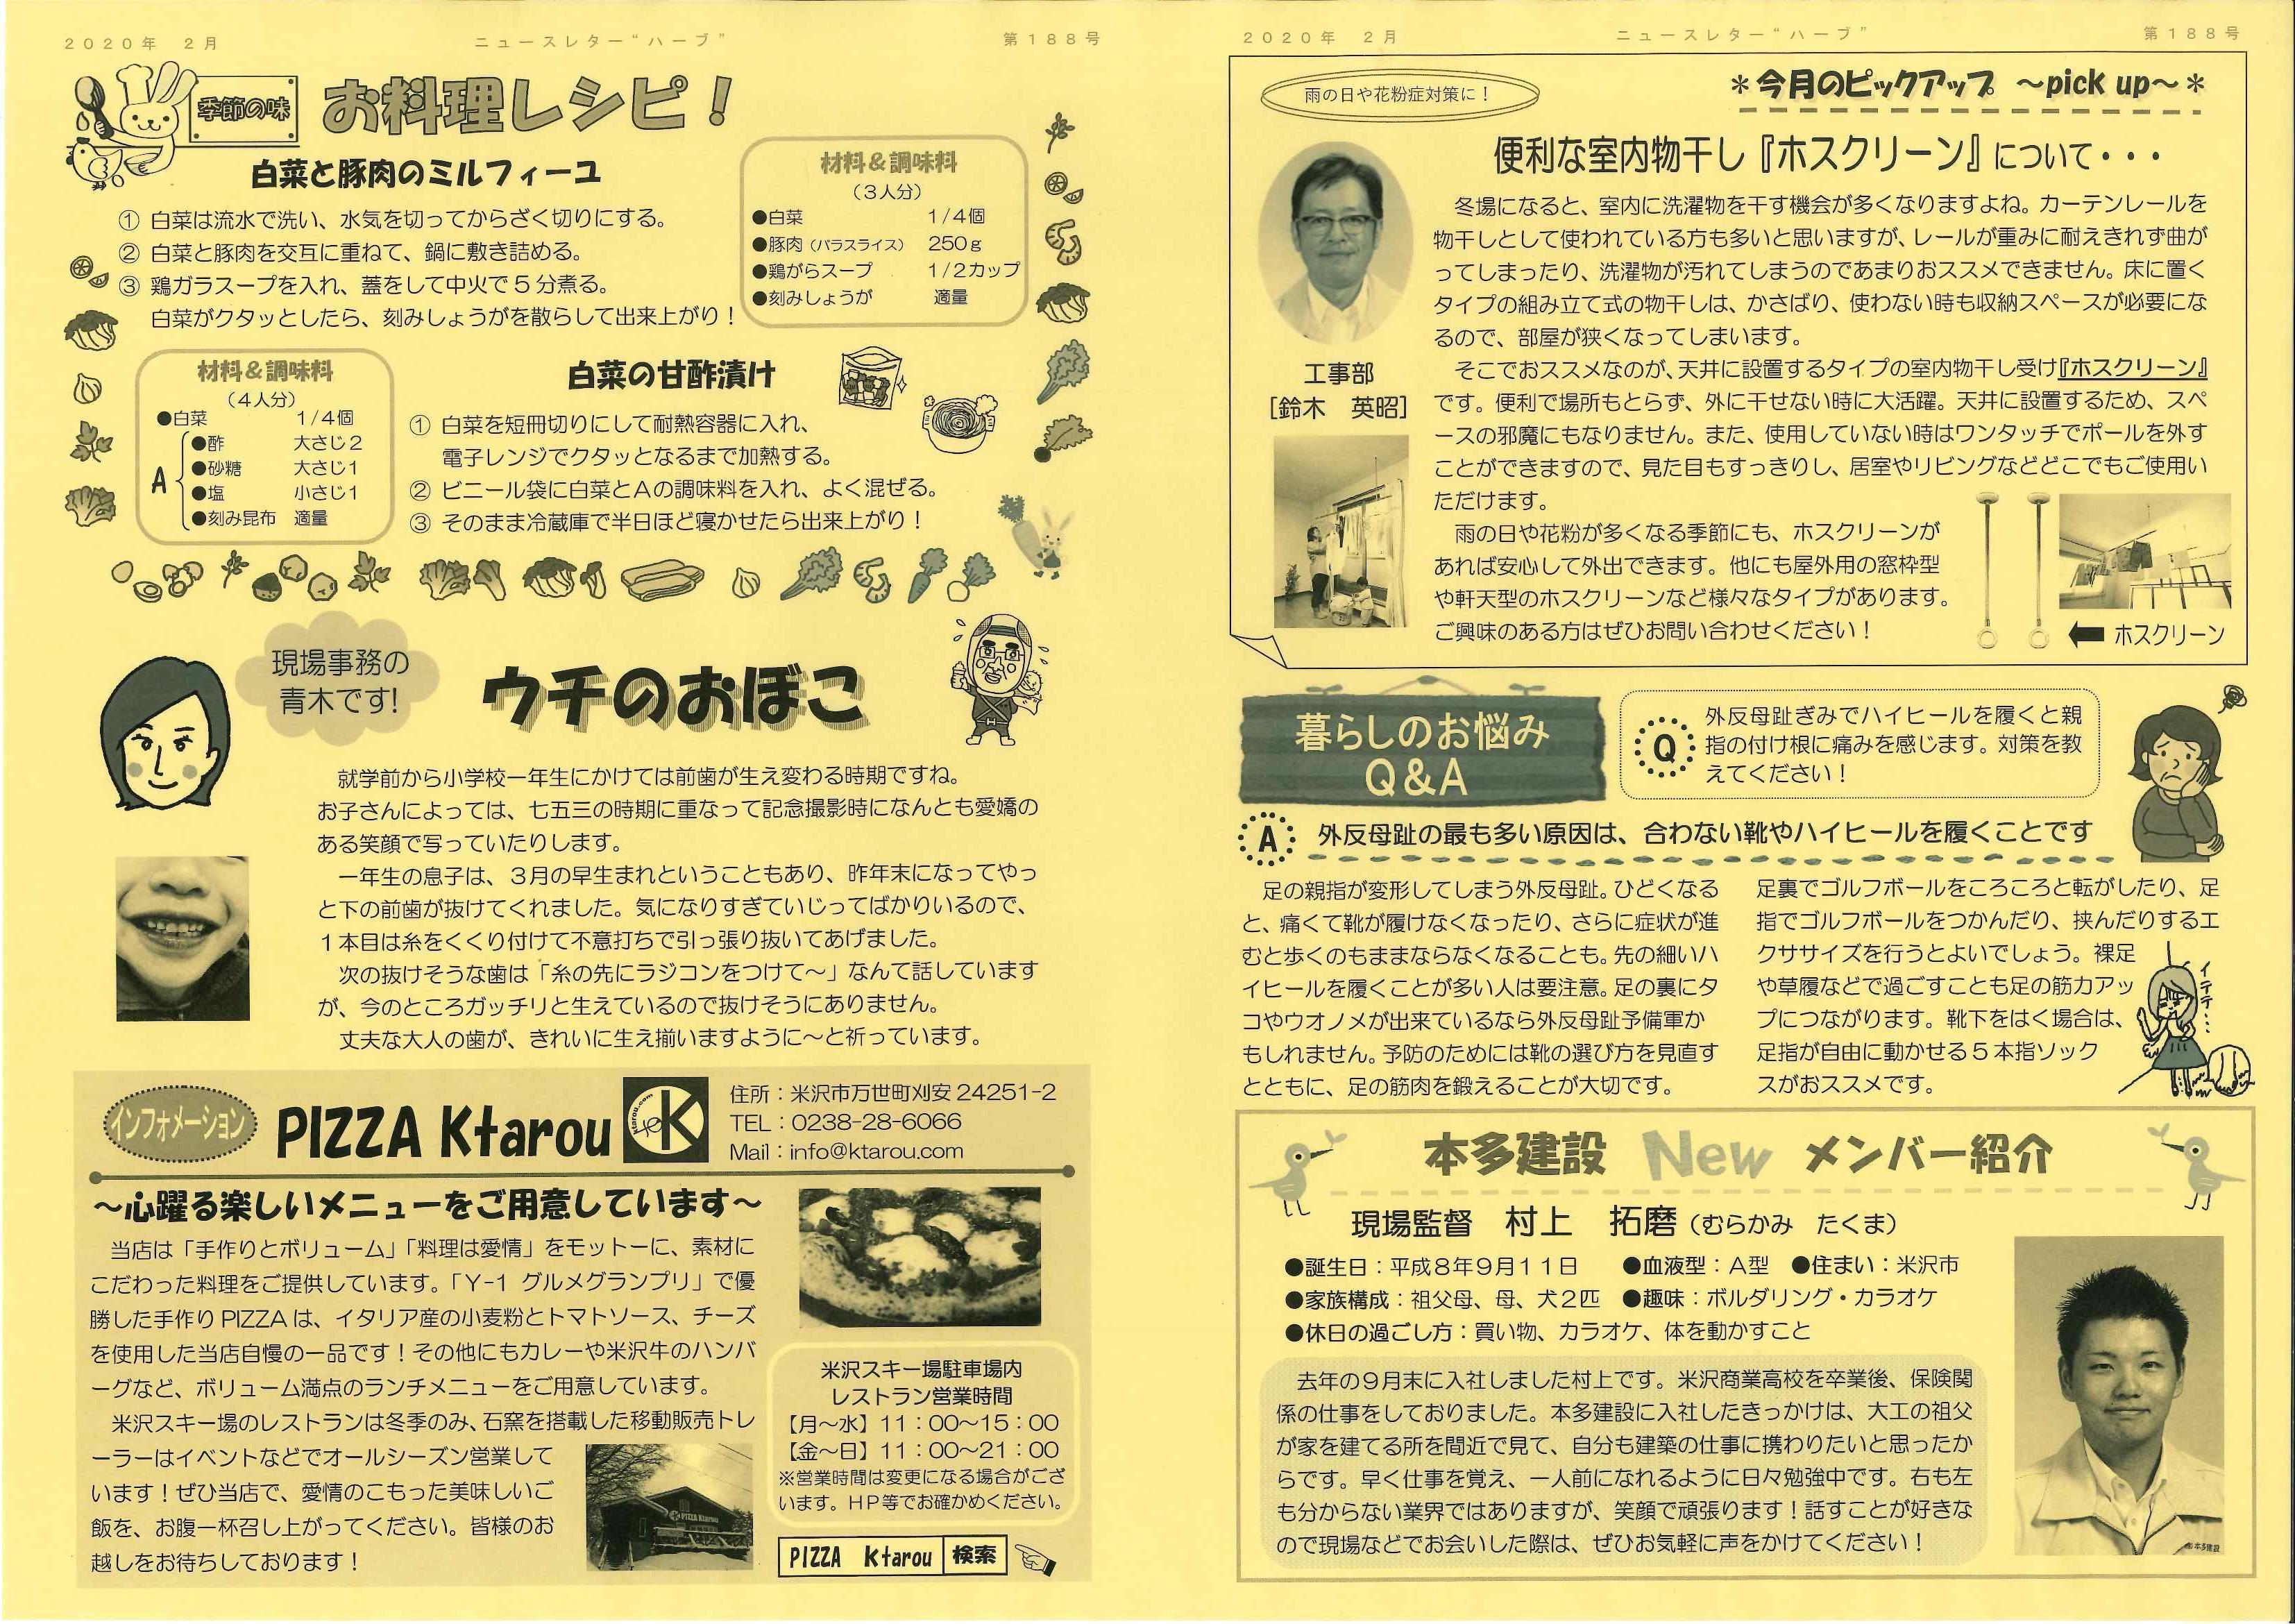 2020年　2月
ニュースレター“ハーブ”
第188号
季節の味
お料理レシピ！
白菜と豚肉のミルフィーユ
① 白菜は流水で洗い、水気を切ってからざく切りにする。
② 白菜と豚肉を交互に重ねて、鍋に敷き詰める。
③ 鶏ガラスープを入れ、蓋をして中火で5分煮る。
白菜がクタッとしたら、刻みしょうがを散らして出来上がり！
材料＆調味料
（3人分）
●白菜　1/4個
●豚肉（バラスライス）　250g
●鶏がらスープ　1/2カップ
●刻みしょうが　適量
材料＆調味料
（4人分）
●白菜　1/4個
A
●酢　大さじ2
●砂糖　大さじ1
●塩　小さじ1
●刻み昆布　適量
白菜の甘酢漬け
① 白菜を短冊切りにして耐熱容器に入れ、
電子レンジでクタッとなるまで加熱する。
② ビニール袋に白菜とAの調味料を入れ、よく混ぜる。
③ そのまま冷蔵庫で半日ほど寝かせたら出来上がり！
現場事務の
青木です!
ウチのおぼこ
就学前から小学校一年生にかけては前歯が生え変わる時期ですね。
お子さんによっては、七五三の時期に重なって記念撮影時になんとも愛嬌の
ある笑顔で写っていたりします。
一年生の息子は、3月の早生まれということもあり、昨年末になってやっ
と下の前歯が抜けてくれました。気になりすぎていじってばかりいるので、
1本目は糸をくくり付けて不意打ちで引っ張り抜いてあげました。
次の抜けそうな歯は「糸の先にラジコンをつけて～」なんて話しています
が、今のところガッチリと生えているので抜けそうにありません。
丈夫な大人の歯が、きれいに生え揃いますように～と祈っています。
インフォメーション
PIZZA Ktarou
ktarou.com
K
住所：米沢市万世町刈安24251-2
TEL：0238-28-6066
Mail：info@ktarou.com
～心躍る楽しいメニューをご用意しています～
当店は「手作りとボリューム」「料理は愛情」をモットーに、素材に
こだわった料理をご提供しています。「Y-1 グルメグランプリ」で優
勝した手作りPIZZAは、イタリア産の小麦粉とトマトソース、チーズ
を使用した当店自慢の一品です！その他にもカレーや米沢牛のハンバ
ーグなど、ボリューム満点のランチメニューをご用意しています。
米沢スキー場のレストランは冬季のみ、石窯を搭載した移動販売トレ
ーラーはイベントなどでオールシーズン営業して
います！ぜひ当店で、愛情のこもった美味しいご
飯を、お腹一杯召し上がってください。皆様のお
越しをお待ちしております！
PIZZA Ktarou
米沢スキー場駐車場内
レストラン営業時間
【月～水】11：00～15：00
【金～日】11：00～21：00
※営業時間は変更になる場合がござ
います。HP等でお確かめください。
PIZZA　Ktarou　検索
2020年　2月
ニュースレター“ハーブ”
第188号
雨の日や花粉症対策に！
＊今月のピックアップ　～pick up～＊
便利な室内物干し『ホスクリーン』について・・・
工事部
[鈴木　英昭]
冬場になると、室内に洗濯物を干す機会が多くなりますよね。カーテンレールを
物干しとして使われている方も多いと思いますが、レールが重みに耐えきれず曲が
ってしまったり、洗濯物が汚れてしまうのであまりおススメできません。床に置く
タイプの組み立て式の物干しは、かさばり、使わない時も収納スペースが必要にな
るので、部屋が狭くなってしまいます。
そこでおススメなのが、天井に設置するタイプの室内物干し受け『ホスクリーン』
です。便利で場所もとらず、外に干せない時に大活躍。天井に設置するため、スペ
ースの邪魔にもなりません。また、使用していない時はワンタッチでポールを外す
ことができますので、見た目もすっきりし、居室やリビングなどどこでもご使用い
ただけます。
雨の日や花粉が多くなる季節にも、ホスクリーンが
あれば安心して外出できます。他にも屋外用の窓枠型
や軒天型のホスクリーンなど様々なタイプがあります。
ご興味のある方はぜひお問い合わせください！
ホスクリーン
暮らしのお悩み
Q&A
Q
外反母趾ぎみでハイヒールを履くと親
指の付け根に痛みを感じます。対策を教
えてください！
A
外反母趾の最も多い原因は、合わない靴やハイヒールを履くことです
足の親指が変形してしまう外反母趾。ひどくなる
と、痛くて靴が履けなくなったり、さらに症状が進
むと歩くのもままならなくなることも。先の細いハ
イヒールを履くことが多い人は要注意。足の裏にタ
コやウオノメが出来ているなら外反母趾予備軍か
もしれません。予防のためには靴の選び方を見直す
とともに、足の筋肉を鍛えることが大切です。
足裏でゴルフボールをころころと転がしたり、足
指でゴルフボールをつかんだり、挟んだりするエ
クササイズを行うとよいでしょう。裸足
や草履などで過ごすことも足の筋力アッ
プにつながります。靴下をはく場合は、
足指が自由に動かせる5本指ソック
スがおススメです。
イテテテ…
本多建設　New　メンバー紹介
現場監督　村上　拓磨（むらかみ　たくま）
●誕生日：平成8年9月11日　●血液型：A型　●住まい：米沢市
●家族構成：祖父母、母、犬2匹　●趣味：ボルダリング・カラオケ
●休日の過ごし方：買い物、カラオケ、体を動かすこと
去年の9月末に入社しました村上です。米沢商業高校を卒業後、保険関
係の仕事をしておりました。本多建設に入社したきっかけは、大工の祖父
が家を建てる所を間近で見て、自分も建築の仕事に携わりたいと思ったか
らです。早く仕事を覚え、一人前になれるように日々勉強中です。右も左
も分からない業界ではありますが、笑顔で頑張ります！話すことが好きな
ので現場などでお会いした際は、ぜひお気軽に声をかけてください！
本多建設